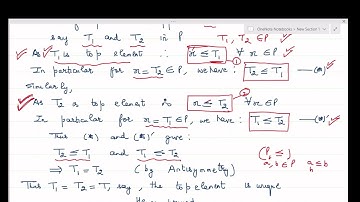 OneNote Notebooks > New Section 1
say T₁ and T₂ in P T₁, T₂ ∈ P
As T₁ is top element ∴ x ≤ T₁ ∀ x ∈ P ①
In particular for x = T₂ ∈ P, we have : T₂ ≤ T₁ — (*)
Similarly,
As T₂ is top element ∴ x ≤ T₂ ∀ x ∈ P ②
In particular for x = T₁ ∈ P, we have : T₁ ≤ T₂ — (*)'
Thus (*) and (*)' give :
T₂ ≤ T₁ and T₁ ≤ T₂ (P, ≤)
⇒ T₁ = T₂ (by Antisymmetry) a, b ∈ P a ≤ b
Thus T₁ = T₂ = T, say, the top element is unique